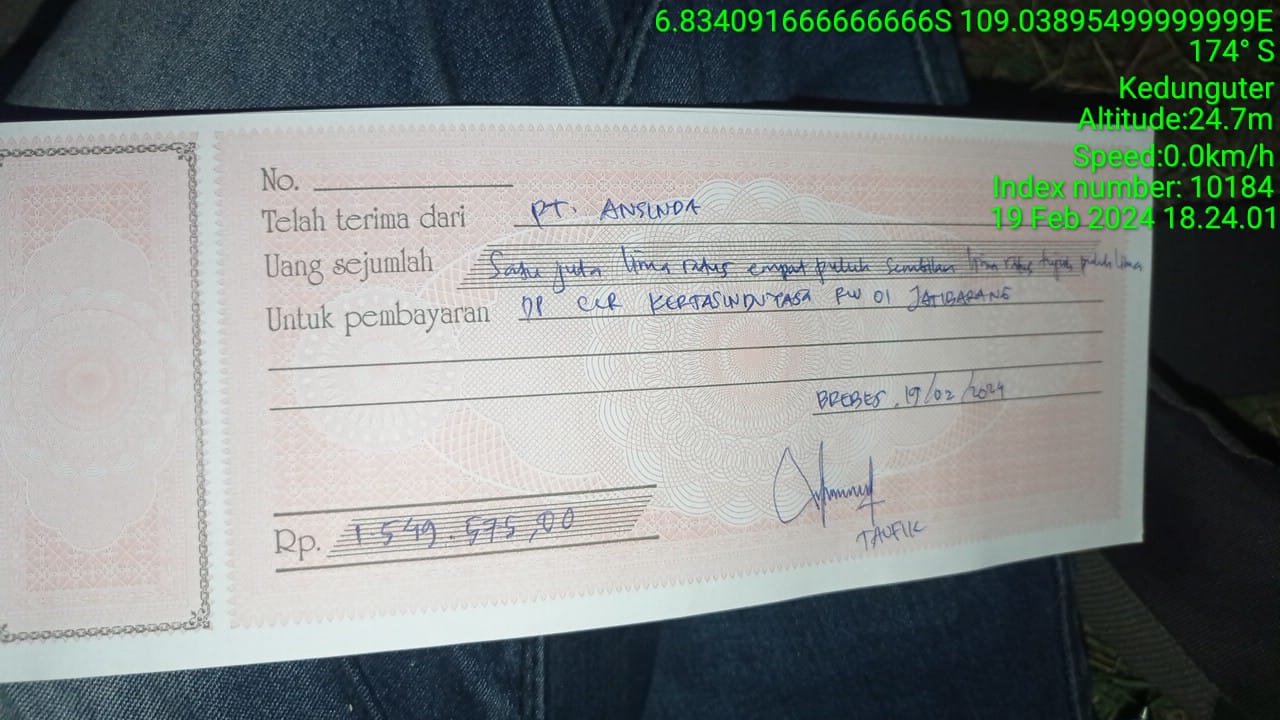 6.834091666666666S 109.03895499999999E
174° S
Kedunguter
Altitude:24.7m
Speed:0.0km/h
Index number: 10184
19 Feb 2024 18.24.01
No.
Telah terima dari PT. ANSINDA
Uang sejumlah Satu juta lima ratus empat puluh sembilan lima ratus tujuh puluh lima
Untuk pembayaran DP CCR KERTASINDUYASA RW 01 JATIBARANG
BREBES, 19/02/2024
Rp. 1.549.575,00
TAUFIK